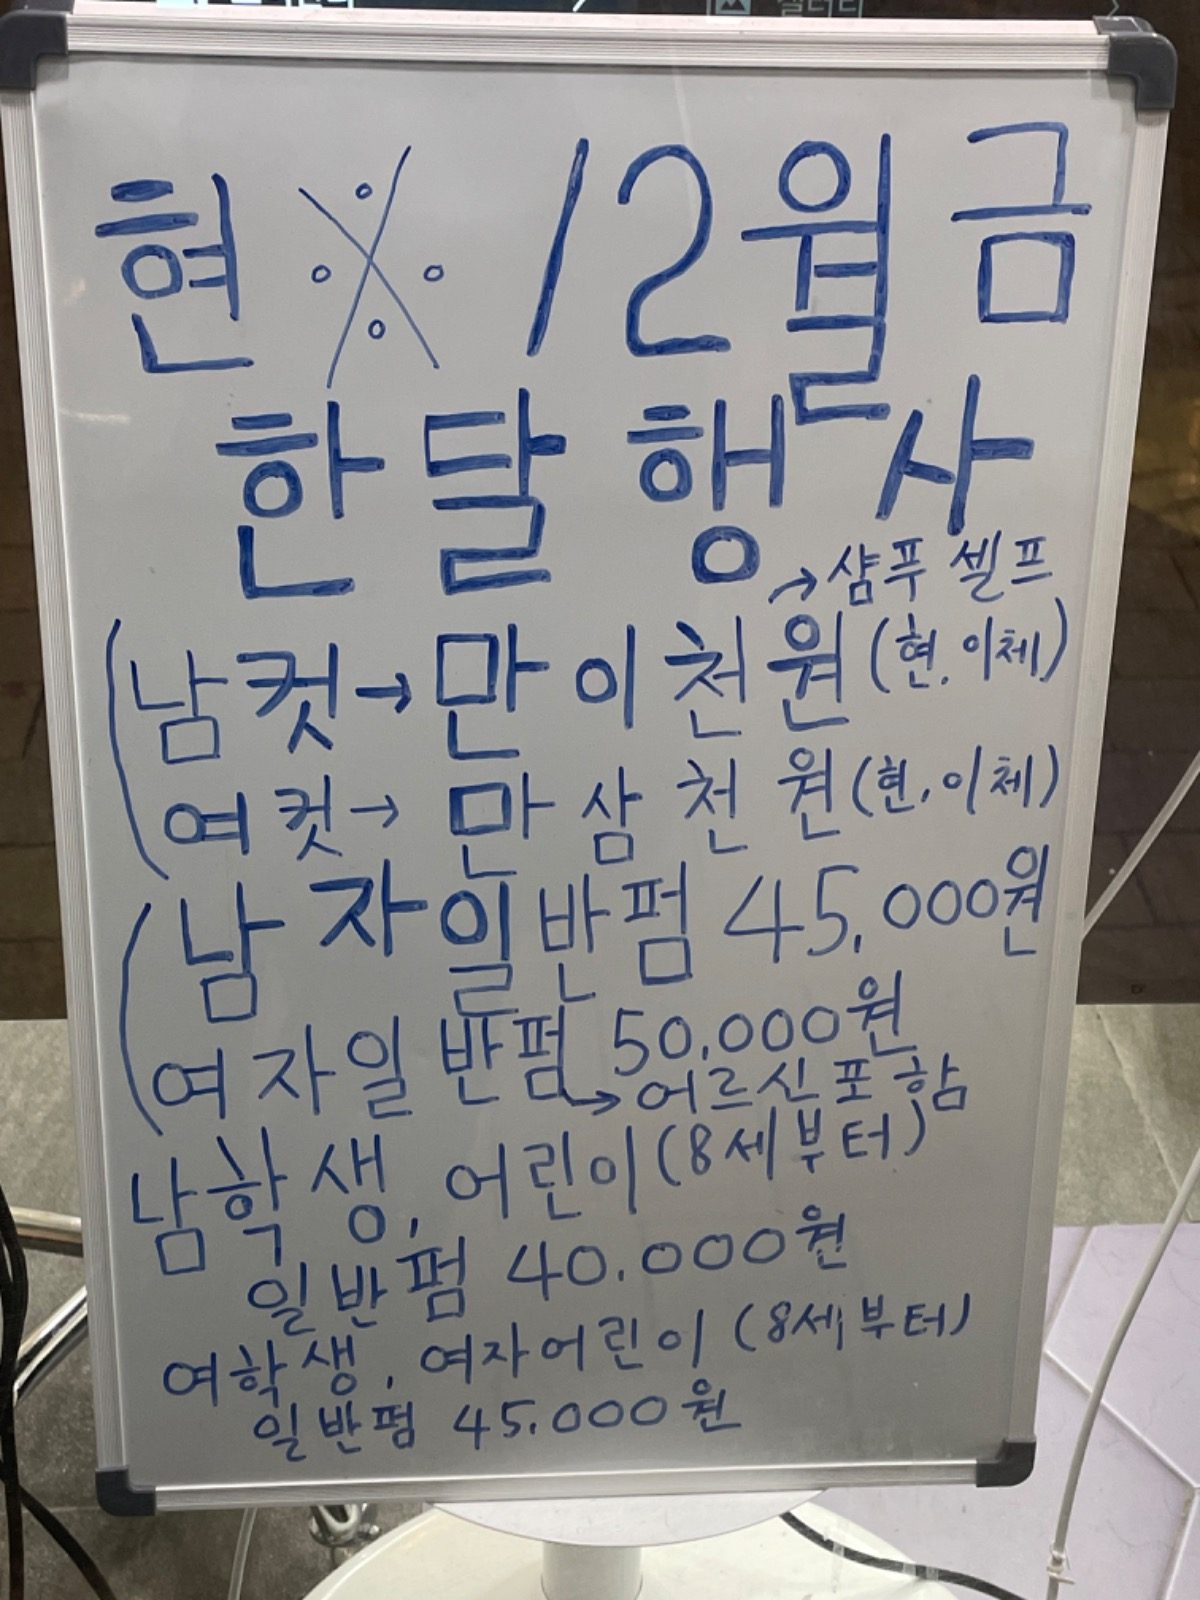 현 ※ 12월 금
한달 행사
→샴푸 셀프
남컷→만이천원(현.이체)
여컷→만삼천원(현.이체)
남자일반펌 45,000원
여자일반펌 50,000원
→어르신포함
남학생, 어린이(8세부터)
일반펌 40.000원
여학생, 여자어린이(8세부터)
일반펌 45.000원